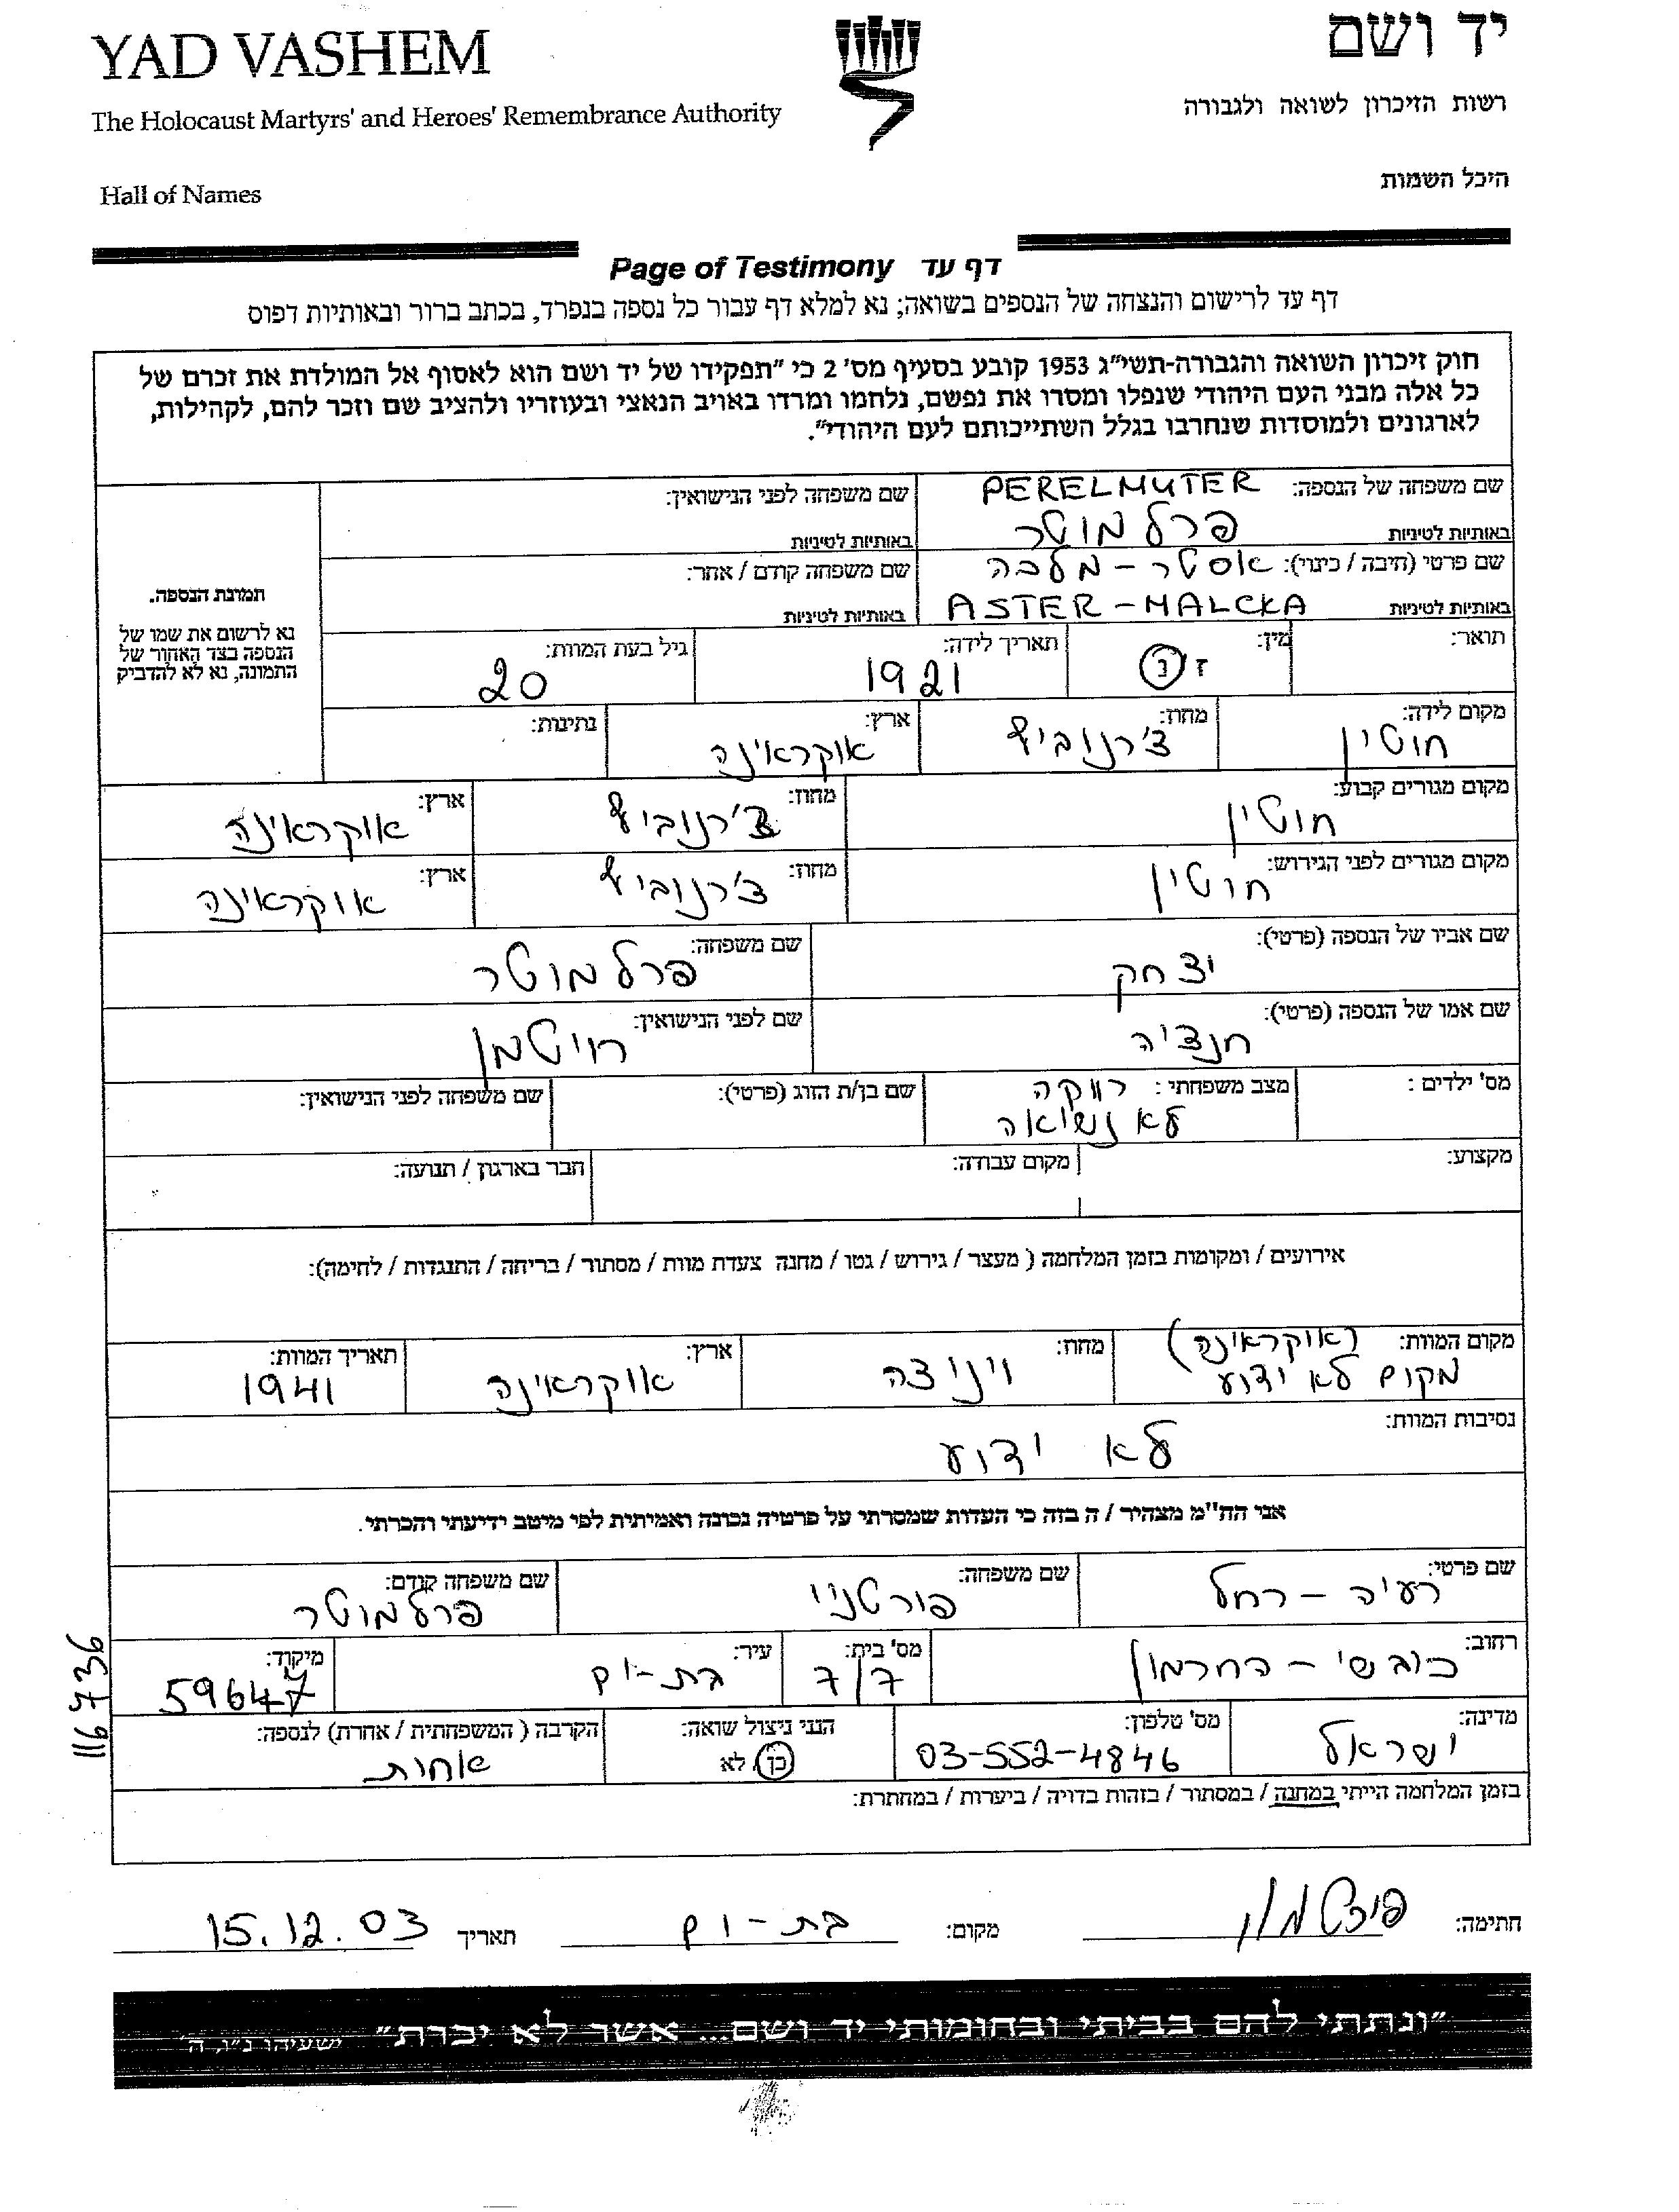 YAD VASHEM
יד ושם
The Holocaust Martyrs' and Heroes' Remembrance Authority
רשות הזיכרון לשואה ולגבורה
Hall of Names
היכל השמות
Page of Testimony דף עד
דף עד לרישום והנצחה של הנספים בשואה; נא למלא דף עבור כל נספה בנפרד, בכתב ברור ובאותיות דפוס
חוק זיכרון השואה והגבורה-תשי"ג 1953 קובע בסעיף מס' 2 כי "תפקידו של יד ושם הוא לאסוף אל המולדת את זכרם של
כל אלה מבני העם היהודי שנפלו ומסרו את נפשם, נלחמו ומרדו באויב הנאצי ובעוזריו ולהציב שם וזכר להם, לקהילות,
לארגונים ולמוסדות שנחרבו בגלל השתייכותם לעם היהודי".
שם משפחה של הנספה: PERELMUTER
באותיות לטיניות פרלמוטר
שם משפחה לפני הנישואין:
באותיות לטיניות
תמונת הנספה.
נא לרשום את שמו של
הנספה בצד האחור של
התמונה, נא לא להדביק
שם פרטי (חיבה / כינוי): אסטר - מלכה
באותיות לטיניות ASTER - MALCKA
שם משפחה קודם / אחר:
באותיות לטיניות
תואר:
מין: ז נ
תאריך לידה: 1921
גיל בעת המוות: 20
מקום לידה: חוטין
מחוז: צ'רנוביץ
ארץ: אוקראינה
נתינות:
מקום מגורים קבוע: חוטין
מחוז: צ'רנוביץ
ארץ: אוקראינה
מקום מגורים לפני הגירוש: חוטין
מחוז: צ'רנוביץ
ארץ: אוקראינה
שם אביו של הנספה (פרטי): יצחק
שם משפחה: פרלמוטר
שם אמו של הנספה (פרטי): חנציה
שם לפני הנישואין: רויטמן
מס' ילדים :
מצב משפחתי : רווקה
לא נשואה
שם בן/ת הזוג (פרטי):
שם משפחה לפני הנישואין:
מקצוע:
מקום עבודה:
חבר בארגון / תנועה:
אירועים / ומקומות בזמן המלחמה ( מעצר / גירוש / גטו / מחנה צעדת מוות / מסתור / בריחה / התנגדות / לחימה):
מקום המוות: (אוקראינה)
מקום לא ידוע
מחוז: ויניצה
ארץ: אוקראינה
תאריך המוות: 1941
נסיבות המוות:
לא ידוע
אני הח"מ מצהיר / ה בזה כי העדות שמסרתי על פרטיה נכונה ואמיתית לפי מיטב ידיעתי והכרתי.
שם פרטי: רעיה - רחל
שם משפחה: פורטנוי
שם משפחה קודם: פרלמוטר
רחוב: כובשי - החרמון
מס' בית: 7/7
עיר: בת-ים
מיקוד: 59647
116736
מדינה: ישראל
מס' טלפון: 03-552-4846
הנני ניצול שואה: כן לא
הקרבה ( המשפחתית / אחרת) לנספה: אחות
בזמן המלחמה הייתי במחנה / במסתור / בזהות בדויה / ביערות / במחתרת:
חתימה:
מקום: בת-ים
תאריך 15.12.03
"ונתתי להם בביתי ובחומותי יד ושם... אשר לא יכרת" ישעיהו נ"ו, ה'